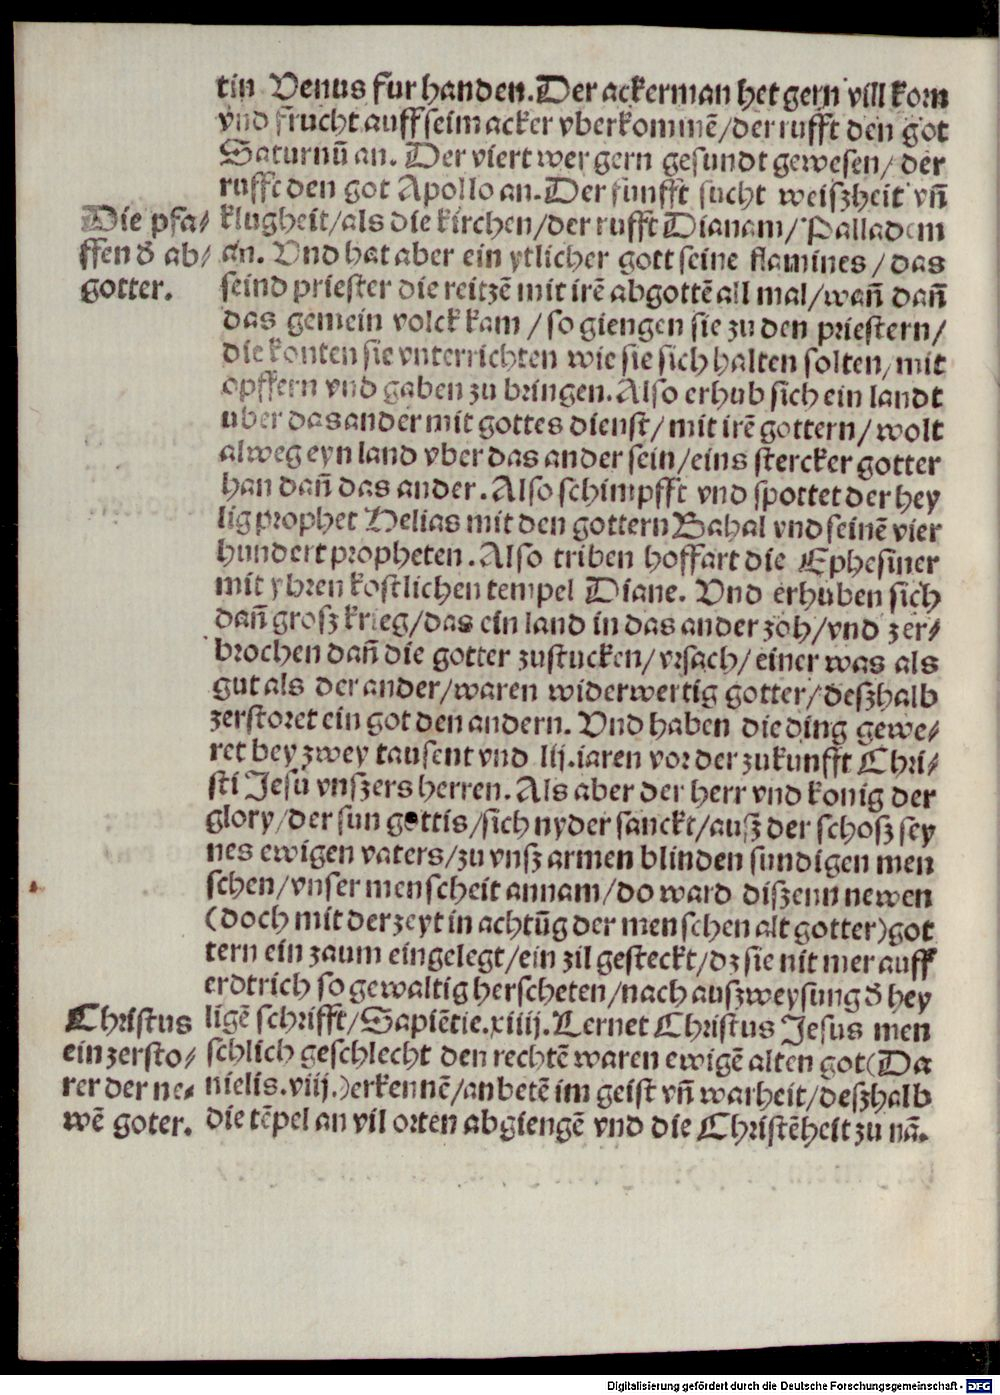 tin Venus fur handen. Der ackerman het gern vill korn
vnd frucht auff seim acker vberkommē/der rufft den got
Saturnū an. Der viert wer gern gesundt gewesen/ der
rufft den got Apollo an. Der funfft sucht weiszheit vn̄
Die pfa-
ffen d̄ ab-
gotter.
klugheit/als die kirchen/der rufft Dianam/ Palladem
an. Vnd hat aber ein ytlicher gott seine flamines/ das
seind priester die reitzē mit irē abgottē all mal/wan̄ dan̄
das gemein volck kam / so giengen sie zu den priestern/
die konten sie vnterrichten wie sie sich halten solten/ mit
opffern vnd gaben zu bringen. Also erhub sich ein landt
uber das ander mit gottes dienst/ mit irē gottern/ wolt
alweg eyn land vber das ander sein/eins stercker gotter
han dan̄ das ander. Also schimpfft vnd spottet der hey
lig prophet Helias mit den gottern Bahal vnd seinē vier
hundert propheten. Also triben hoffart die Ephesiner
mit yhren kostlichen tempel Diane. Vnd erhuben sich
dan̄ grosz krieg/das ein land in das ander zoh/vnd zer-
brochen dan̄ die gotter zustucken/ vrsach/ einer was als
gut als der ander/waren widerwertig gotter/deszhalb
zerstoret ein got den andern. Vnd haben die ding gewe-
ret bey zwey tausent vnd lij.iaren vor der zukunfft Chri-
sti Jesu vnszers herren. Als aber der herr vnd konig der
glory/der sun gottis/sich nyder sanckt/ausz der schosz sey
nes ewigen vaters/zu vnsz armen blinden sundigen men
schen/vnser menscheit annam/do ward diszenn newen
(doch mit der zeyt in achtūg der menschen alt gotter)got
tern ein zaum eingelegt/ein zil gesteckt/dz sie nit mer auff
erdtrich so gewaltig herscheten/nach auszweysung d̄ hey
Christus
ein zersto-
rer der ne-
wē goter.
ligē schrifft/Sapiētie.xiiij. Lernet Christus Jesus men
schlich geschlecht den rechtē waren ewigē alten got(Da
nielis.viij.)erkennē/anbetē im geist vn̄ warheit/deszhalb
die tēpel an vil orten abgiengē vnd die Christēheit zu nā.
Digitalisierung gefördert durch die Deutsche Forschungsgemeinschaft - DFG